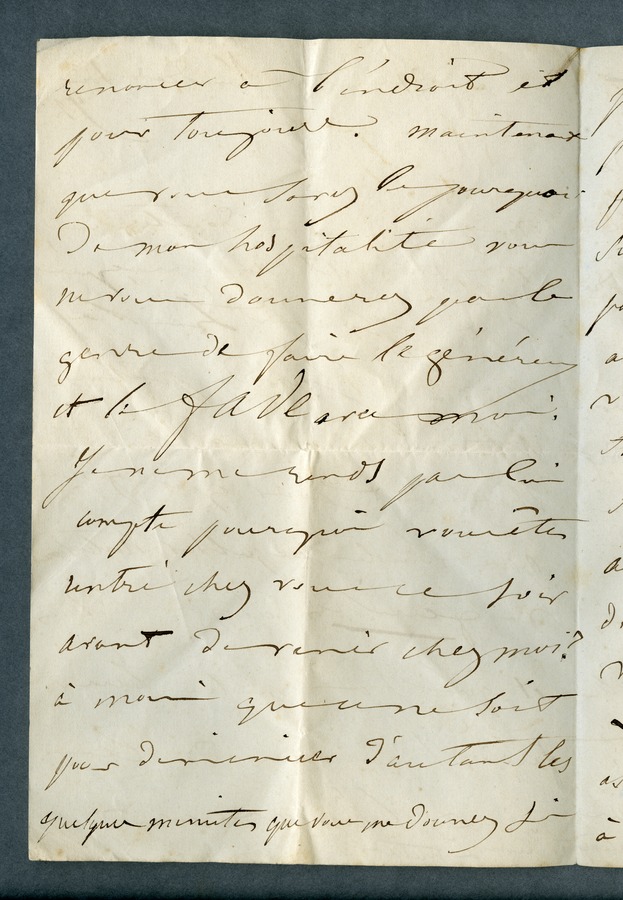 renoncer à l'endroit et
pour toujours. maintenant
que vous savez le pourquoi
de mon hospitalité vous
ne vous donnerez pas le
genre de faire le généreux
et le fade avec moi.
Je ne me rends pas bien
compte pourquoi vous êtes
rentré chez vous ce soir
avant de venir chez moi?
à moins que ce ne soit
pour diminuer d'autant les
quelques minutes que vous me donnez